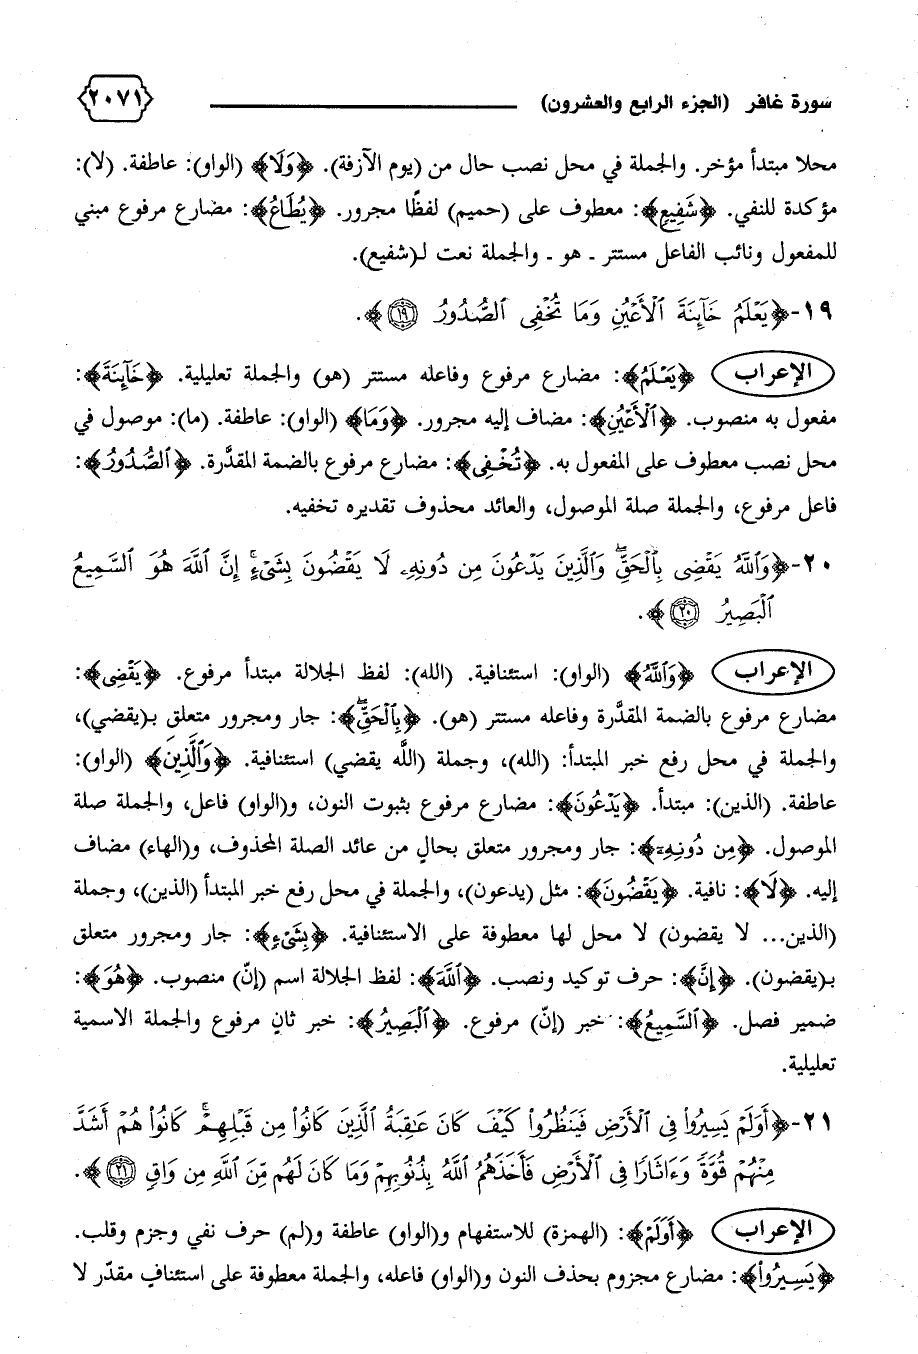 سورة غافر (الجزء الرابع والعشرون) ٢٠٧١
محلا مبتدأ مؤخر. والجملة في محل نصب حال من (يوم الآزفة). ﴿وَلَا﴾ (الواو): عاطفة. (لا):
مؤكدة للنفي. ﴿شَفِيعٍ﴾: معطوف على (حميم) لفظًا مجرور. ﴿يُطَاعُ﴾: مضارع مرفوع مبني
للمفعول ونائب الفاعل مستتر ـ هو ـ والجملة نعت لـ(شفيع).
١٩-﴿يَعْلَمُ خَآئِنَةَ ٱلْأَعْيُنِ وَمَا تُخْفِى ٱلصُّدُورُ ۝١٩﴾.
الإعراب ﴿يَعْلَمُ﴾: مضارع مرفوع وفاعله مستتر (هو) والجملة تعليلية. ﴿خَآئِنَةَ﴾:
مفعول به منصوب. ﴿ٱلْأَعْيُنِ﴾: مضاف إليه مجرور. ﴿وَمَا﴾ (الواو): عاطفة. (ما): موصول في
محل نصب معطوف على المفعول به. ﴿تُخْفِى﴾: مضارع مرفوع بالضمة المقدَّرة. ﴿ٱلصُّدُورُ﴾:
فاعل مرفوع، والجملة صلة الموصول، والعائد محذوف تقديره تخفيه.
٢٠-﴿وَٱللَّهُ يَقْضِى بِٱلْحَقِّ ۖ وَٱلَّذِينَ يَدْعُونَ مِن دُونِهِۦ لَا يَقْضُونَ بِشَىْءٍ ۗ إِنَّ ٱللَّهَ هُوَ ٱلسَّمِيعُ
ٱلْبَصِيرُ ۝٢٠﴾.
الإعراب ﴿وَٱللَّهُ﴾ (الواو): استئنافية. (الله): لفظ الجلالة مبتدأ مرفوع. ﴿يَقْضِى﴾:
مضارع مرفوع بالضمة المقدَّرة وفاعله مستتر (هو). ﴿بِٱلْحَقِّ ۖ﴾: جار ومجرور متعلق بـ(يقضي)،
والجملة في محل رفع خبر المبتدأ: (الله)، وجملة (اللَّه يقضي) استئنافية. ﴿وَٱلَّذِينَ﴾ (الواو):
عاطفة. (الذين): مبتدأ. ﴿يَدْعُونَ﴾: مضارع مرفوع بثبوت النون، و(الواو) فاعل، والجملة صلة
الموصول. ﴿مِن دُونِهِۦ﴾: جار ومجرور متعلق بحالٍ من عائد الصلة المحذوف، و(الهاء) مضاف
إليه. ﴿لَا﴾: نافية. ﴿يَقْضُونَ﴾: مثل (يدعون)، والجملة في محل رفع خبر المبتدأ (الذين)، وجملة
(الذين... لا يقضون) لا محل لها معطوفة على الاستئنافية. ﴿بِشَىْءٍ﴾: جار ومجرور متعلق
بـ(يقضون). ﴿إِنَّ﴾: حرف توكيد ونصب. ﴿ٱللَّهَ﴾: لفظ الجلالة اسم (إنّ) منصوب. ﴿هُوَ﴾:
ضمير فصل. ﴿ٱلسَّمِيعُ﴾: خبر (إنّ) مرفوع. ﴿ٱلْبَصِيرُ﴾: خبر ثانٍ مرفوع والجملة الاسمية
تعليلية.
٢١-﴿أَوَلَمْ يَسِيرُوا۟ فِى ٱلْأَرْضِ فَيَنظُرُوا۟ كَيْفَ كَانَ عَـٰقِبَةُ ٱلَّذِينَ كَانُوا۟ مِن قَبْلِهِمْ ۚ كَانُوا۟ هُمْ أَشَدَّ
مِنْهُمْ قُوَّةً وَءَاثَارًا فِى ٱلْأَرْضِ فَأَخَذَهُمُ ٱللَّهُ بِذُنُوبِهِمْ وَمَا كَانَ لَهُم مِّنَ ٱللَّهِ مِن وَاقٍ ۝٢١﴾.
الإعراب ﴿أَوَلَمْ﴾: (الهمزة) للاستفهام و(الواو) عاطفة و(لم) حرف نفي وجزم وقلب.
﴿يَسِيرُوا۟﴾: مضارع مجزوم بحذف النون و(الواو) فاعله، والجملة معطوفة على استئنافٍ مقدّر لا